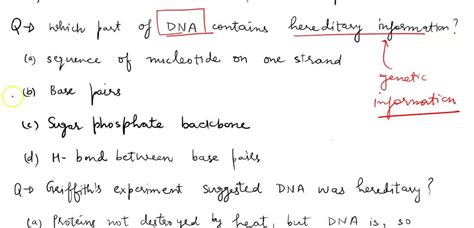 Q→ which part of DNA contains hereditary information?
(a) sequence of nucleotide on one strand
genetic
information
(b) Base pairs
(c) Sugar phosphate backbone
(d) H-bond between base pairs
Q→ Griffith's experiment suggested DNA was hereditary?
(a) Proteins not destroyed by heat, but DNA is, so